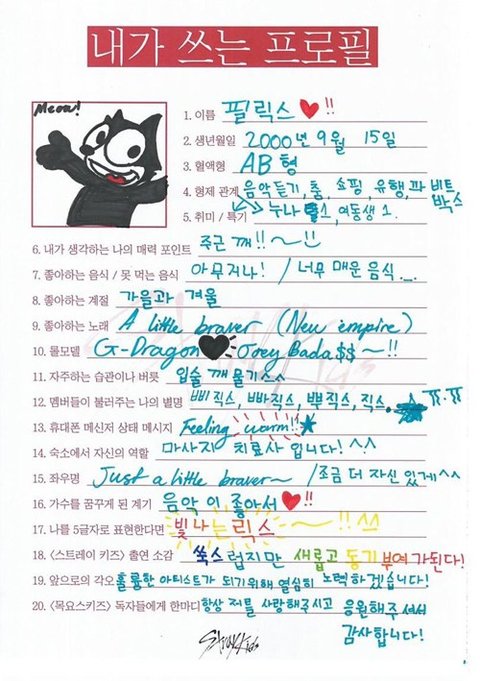 내가 쓰는 프로필
Meow!
1. 이름 필릭스 ♥!!
2. 생년월일 2000년 9월 15일
3. 혈액형 AB형
4. 형제 관계 음악듣기, 춤, 쇼핑, 유행, 과 비트
박스
5. 취미 / 특기 누나 1, 여동생 1.
6. 내가 생각하는 나의 매력 포인트 주근 깨!!~!!
7. 좋아하는 음식 / 못 먹는 음식 아무거나! / 너무 매운 음식._.
8. 좋아하는 계절 가을과 겨울
9. 좋아하는 노래 A little braver (New empire)
10. 롤모델 G-Dragon ♥ Joey Bada$$~!!
11. 자주하는 습관이나 버릇 입술 깨 물기 ^^
12. 멤버들이 불러주는 나의 별명 삐직스, 빠직스, 뽀직스, 직스. ★ ㅠ.ㅠ
13. 휴대폰 메신저 상태 메시지 Feeling warm!!★
14. 숙소에서 자신의 역할 마사지 치료사 입니다! ^^
15. 좌우명 Just a little braver~ / 조금 더 자신 있게^^
16. 가수를 꿈꾸게 된 계기 음악 이 좋아서 ♥!!
17. 나를 5글자로 표현한다면 빛나는릭스 ~!! ^^
18. <스트레이 키즈> 출연 소감 쑥스럽지만 새롭고 동기부여가된다!
19. 앞으로의 각오 훌륭한 아티스트가 되기위해 열심히 노력하겠습니다!
20. <목요스키즈> 독자들에게 한마디 항상 저를 사랑해주시고 응원해주셔서
감사합니다!
Stray Kids